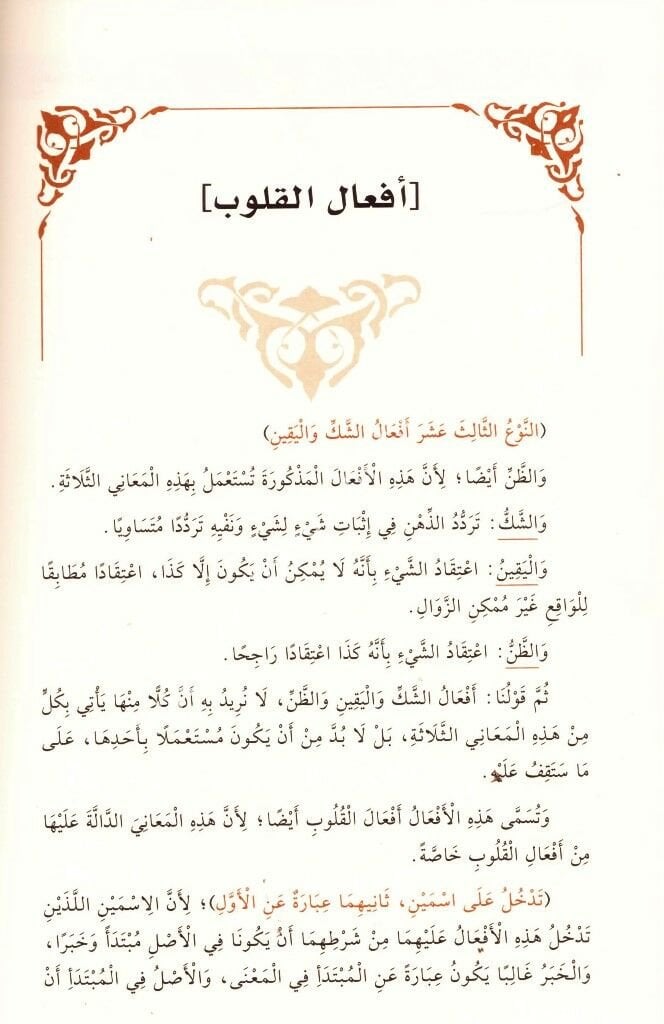 [أفعال القلوب]
(النَّوْعُ الثَّالِثَ عَشَرَ أَفْعَالُ الشَّكِّ وَالْيَقِينِ)
وَالظَّنِّ أَيْضًا؛ لِأَنَّ هَذِهِ الْأَفْعَالَ الْمَذْكُورَةَ تُسْتَعْمَلُ بِهَذِهِ الْمَعَانِي الثَّلَاثَةِ.
وَالشَّكُّ: تَرَدُّدُ الذِّهْنِ فِي إِثْبَاتِ شَيْءٍ لِشَيْءٍ وَنَفْيِهِ تَرَدُّدًا مُتَسَاوِيًا.
وَالْيَقِينُ: اعْتِقَادُ الشَّيْءِ بِأَنَّهُ لَا يُمْكِنُ أَنْ يَكُونَ إِلَّا كَذَا، اعْتِقَادًا مُطَابِقًا
لِلْوَاقِعِ غَيْرَ مُمْكِنِ الزَّوَالِ.
وَالظَّنُّ: اعْتِقَادُ الشَّيْءِ بِأَنَّهُ كَذَا اعْتِقَادًا رَاجِحًا.
ثُمَّ قَوْلُنَا: أَفْعَالُ الشَّكِّ وَالْيَقِينِ وَالظَّنِّ، لَا نُرِيدُ بِهِ أَنَّ كُلًّا مِنْهَا يَأْتِي بِكُلٍّ
مِنْ هَذِهِ الْمَعَانِي الثَّلَاثَةِ، بَلْ لَا بُدَّ مِنْ أَنْ يَكُونَ مُسْتَعْمَلًا بِأَحَدِهَا، عَلَى
مَا سَتَقِفُ عَلَيْهِ.
وَتُسَمَّى هَذِهِ الْأَفْعَالُ أَفْعَالَ الْقُلُوبِ أَيْضًا؛ لِأَنَّ هَذِهِ الْمَعَانِيَ الدَّالَّةَ عَلَيْهَا
مِنْ أَفْعَالِ الْقُلُوبِ خَاصَّةً.
(تَدْخُلُ عَلَى اسْمَيْنِ، ثَانِيهِمَا عِبَارَةٌ عَنِ الْأَوَّلِ)؛ لِأَنَّ الِاسْمَيْنِ اللَّذَيْنِ
تَدْخُلُ هَذِهِ الْأَفْعَالُ عَلَيْهِمَا مِنْ شَرْطِهِمَا أَنْ يَكُونَا فِي الْأَصْلِ مُبْتَدَأً وَخَبَرًا،
وَالْخَبَرُ غَالِبًا يَكُونُ عِبَارَةً عَنِ الْمُبْتَدَأِ فِي الْمَعْنَى، وَالْأَصْلُ فِي الْمُبْتَدَأِ أَنْ